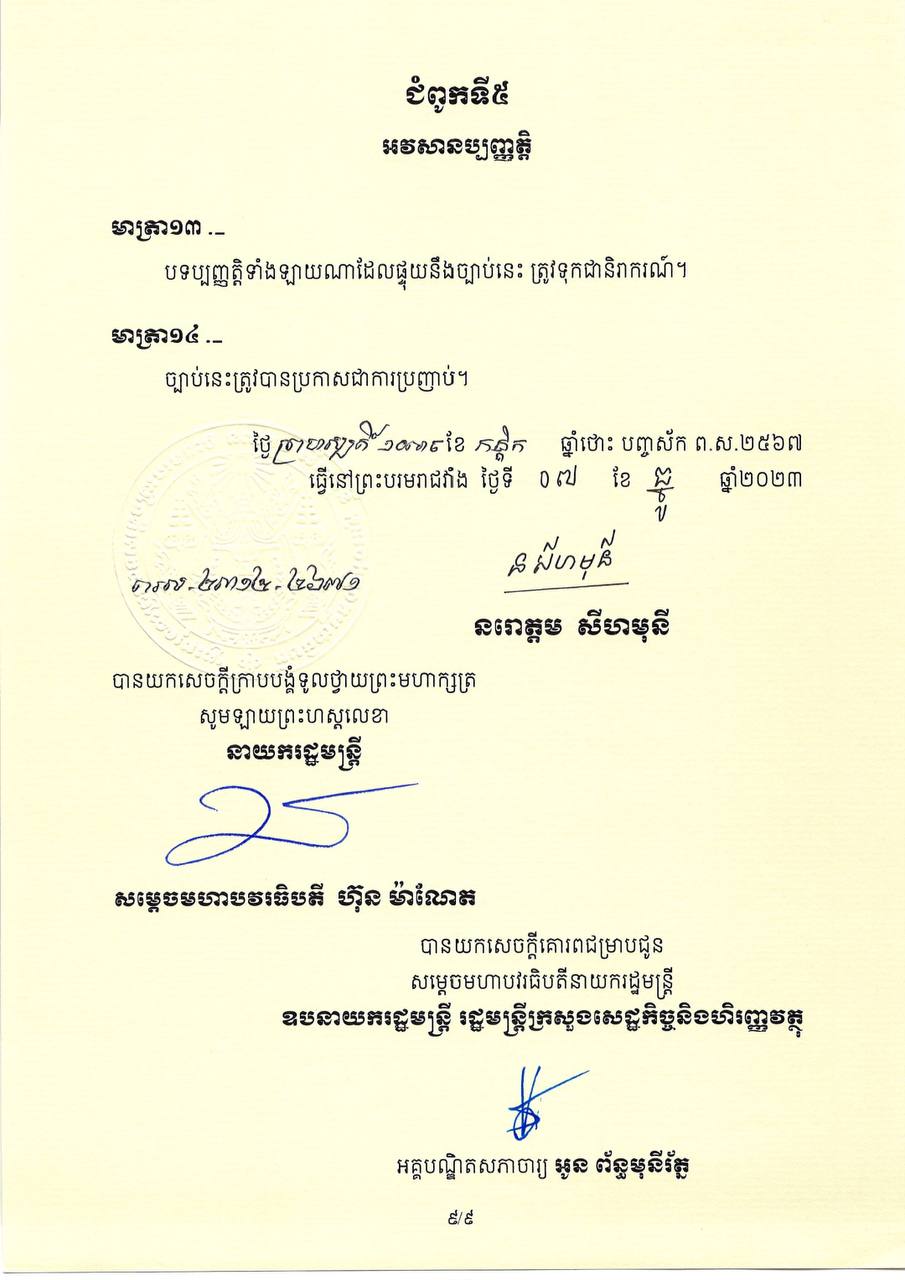 ជំពូកទី៥
អវសានប្បញ្ញត្តិ
មាត្រា១៣ ._
បទប្បញ្ញត្តិទាំងឡាយណាដែលផ្ទុយនឹងច្បាប់នេះ ត្រូវទុកជានិរាករណ៍។
មាត្រា១៤ ._
ច្បាប់នេះត្រូវបានប្រកាសជាការប្រញាប់។
ថ្ងៃ ព្រហស្បតិ៍ ១០រោច ខែ កត្តិក ឆ្នាំថោះ បញ្ចស័ក ព.ស.២៥៦៧
ធ្វើនៅព្រះបរមរាជវាំង ថ្ងៃទី ០៧ ខែ ធ្នូ ឆ្នាំ២០២៣
ន សីហមុនី
នរោត្តម សីហមុនី
បានយកសេចក្តីក្រាបបង្គំទូលថ្វាយព្រះមហាក្សត្រ
សូមឡាយព្រះហស្តលេខា
នាយករដ្ឋមន្ត្រី
សម្តេចមហាបវរធិបតី ហ៊ុន ម៉ាណែត
បានយកសេចក្តីគោរពជម្រាបជូន
សម្តេចមហាបវរធិបតីនាយករដ្ឋមន្ត្រី
ឧបនាយករដ្ឋមន្ត្រី រដ្ឋមន្ត្រីក្រសួងសេដ្ឋកិច្ចនិងហិរញ្ញវត្ថុ
អគ្គបណ្ឌិតសភាចារ្យ អូន ព័ន្ធមុនីរ័ត្ន
៩/៩